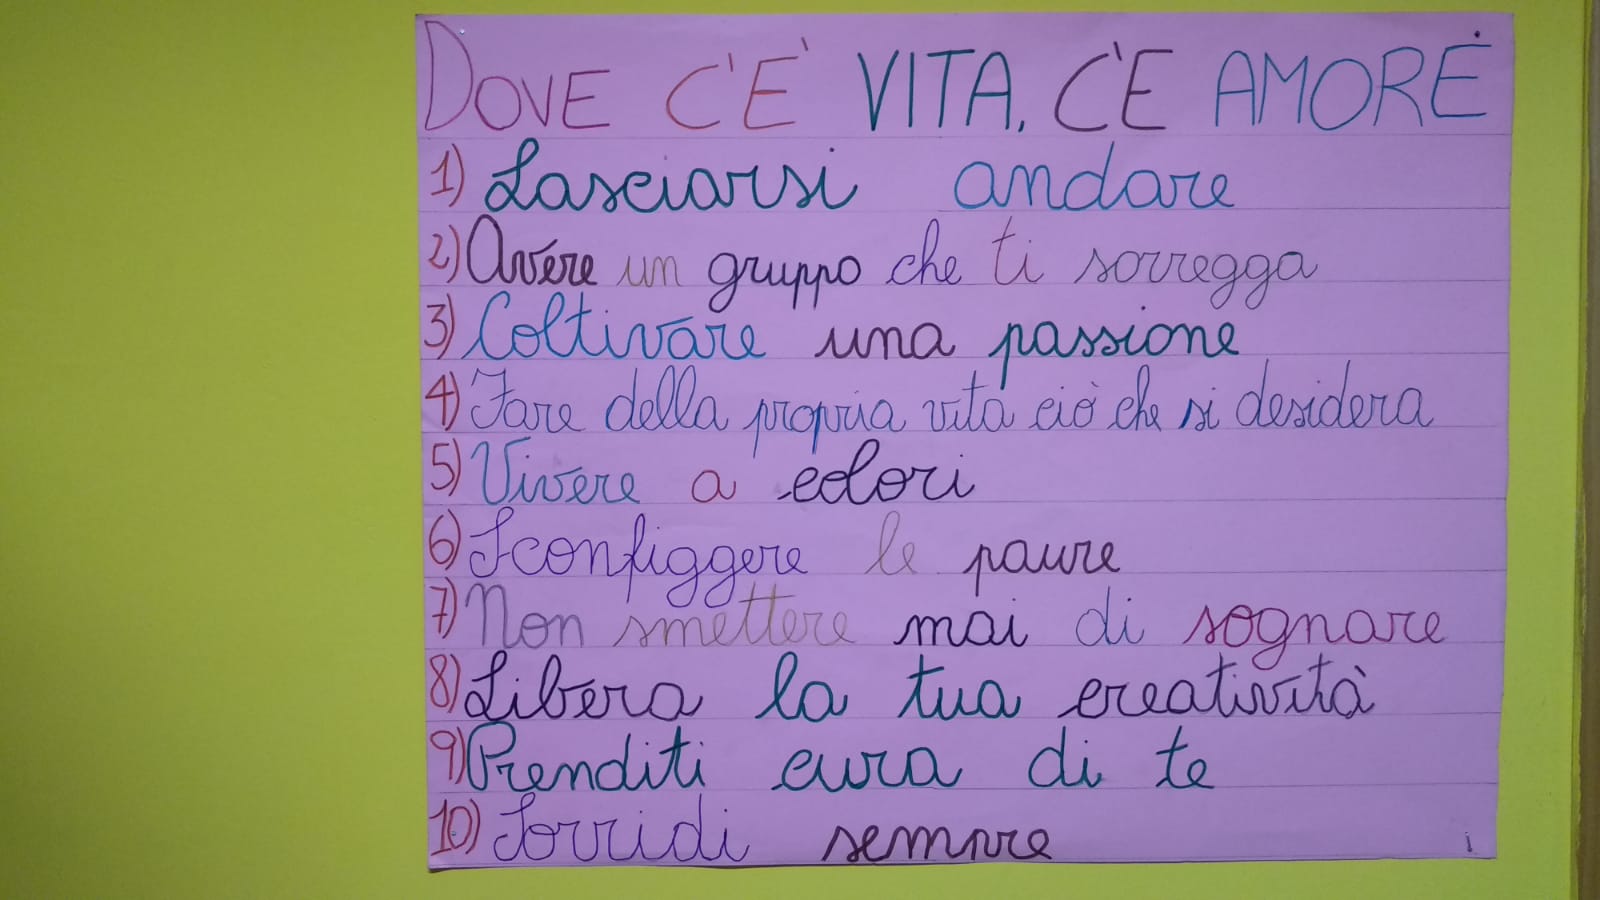 DOVE C'È VITA, C'È AMORE
1) Lasciarsi andare
2) Avere un gruppo che ti sorregga
3) Coltivare una passione
4) Fare della propria vita ciò che si desidera
5) Vivere a colori
6) Sconfiggere le paure
7) Non smettere mai di sognare
8) Libera la tua creatività
9) Prenditi cura di te
10) Sorridi sempre